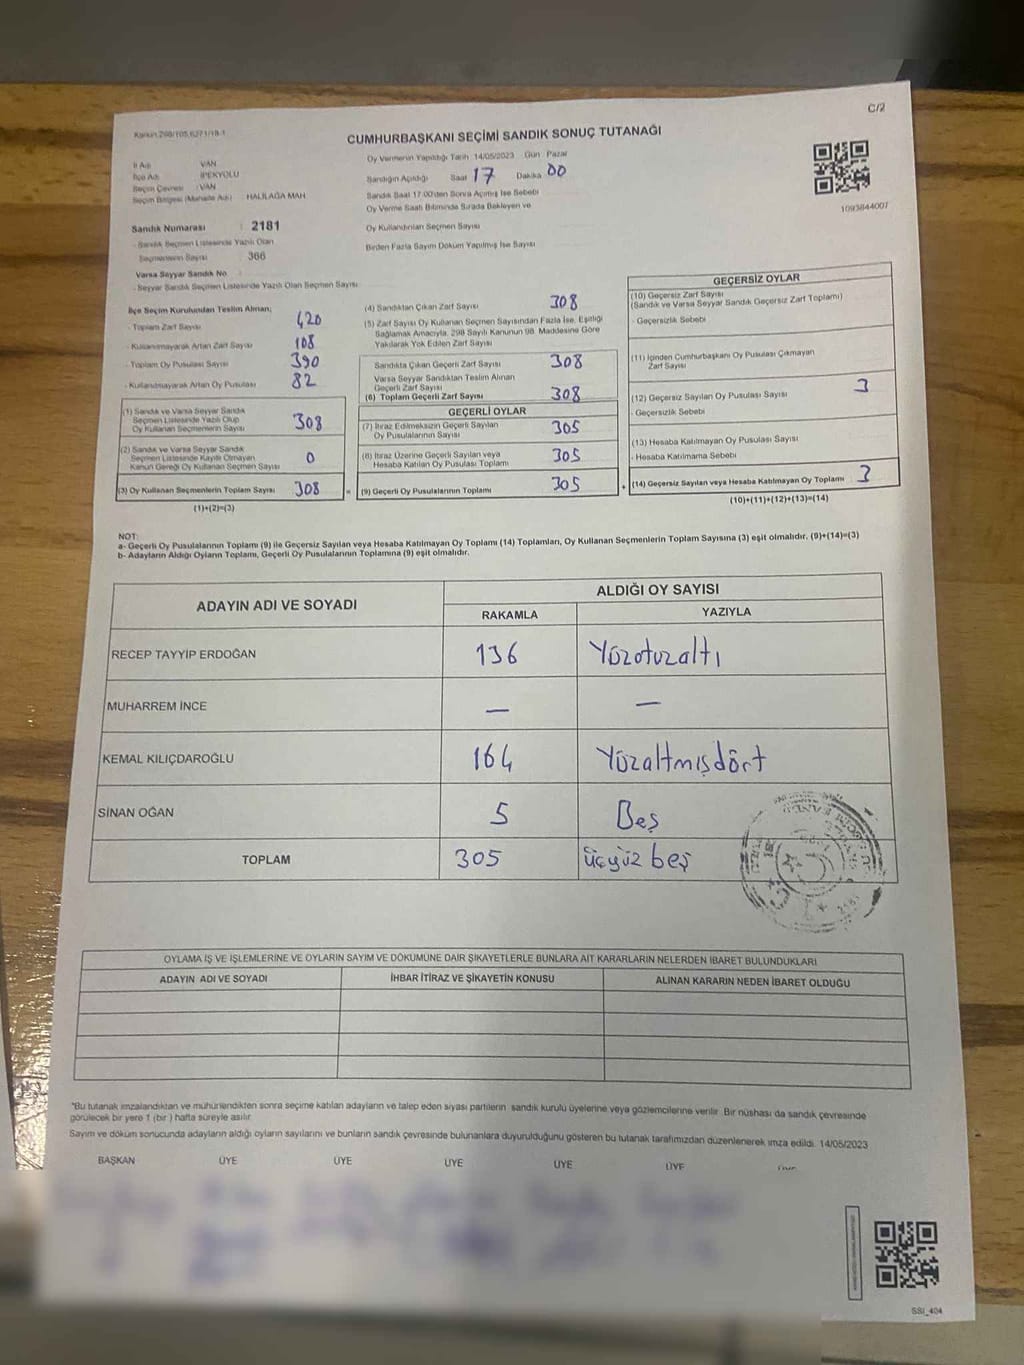 C/2
Kanun:298/105,6271/18-1
CUMHURBAŞKANI SEÇİMİ SANDIK SONUÇ TUTANAĞI
İl Adı VAN
İlçe Adı İPEKYOLU
Seçim Çevresi : VAN
Seçim Bölgesi (Mahalle Adı) HALİLAĞA MAH
Oy Vermenin Yapıldığı Tarih 14/05/2023 Gün Pazar
Sandığın Açıldığı Saat 17 Dakika 00
Sandık Saat 17:00'den Sonra Açılmış İse Sebebi
Oy Verme Saati Bitiminde Sırada Bekleyen ve
Oy Kullandırılan Seçmen Sayısı
Birden Fazla Sayım Döküm Yapılmış İse Sayısı
1093844007
Sandık Numarası : 2181
- Sandık Seçmen Listesinde Yazılı Olan
Seçmenlerin Sayısı 366
Varsa Seyyar Sandık No :
- Seyyar Sandık Seçmen Listesinde Yazılı Olan Seçmen Sayısı
İlçe Seçim Kurulundan Teslim Alınan;
- Toplam Zarf Sayısı 420
- Kullanılmayarak Artan Zarf Sayısı 108
- Toplam Oy Pusulası Sayısı 390
- Kullanılmayarak Artan Oy Pusulası 82
(1) Sandık ve Varsa Seyyar Sandık
Seçmen Listesinde Yazılı Olup
Oy Kullanan Seçmenlerin Sayısı 308
(2) Sandık ve Varsa Seyyar Sandık
Seçmen Listesinde Kayıtlı Olmayan
Kanun Gereği Oy Kullanan Seçmen Sayısı 0
(3) Oy Kullanan Seçmenlerin Toplam Sayısı 308
(1)+(2)=(3)
(4) Sandıktan Çıkan Zarf Sayısı 308
(5) Zarf Sayısı Oy Kullanan Seçmen Sayısından Fazla İse, Eşitliği
Sağlamak Amacıyla, 298 Sayılı Kanunun 98. Maddesine Göre
Yakılarak Yok Edilen Zarf Sayısı
Sandıkta Çıkan Geçerli Zarf Sayısı 308
Varsa Seyyar Sandıktan Teslim Alınan
Geçerli Zarf Sayısı
(6) Toplam Geçerli Zarf Sayısı 308
GEÇERLİ OYLAR
(7) İtiraz Edilmeksizin Geçerli Sayılan
Oy Pusulalarının Sayısı 305
(8) İtiraz Üzerine Geçerli Sayılan veya
Hesaba Katılan Oy Pusulası Toplamı 305
= (9) Geçerli Oy Pusulalarının Toplamı 305
GEÇERSİZ OYLAR
(10) Geçersiz Zarf Sayısı
(Sandık ve Varsa Seyyar Sandık Geçersiz Zarf Toplamı)
- Geçersizlik Sebebi
(11) İçinden Cumhurbaşkanı Oy Pusulası Çıkmayan
Zarf Sayısı
(12) Geçersiz Sayılan Oy Pusulası Sayısı 3
- Geçersizlik Sebebi
(13) Hesaba Katılmayan Oy Pusulası Sayısı
- Hesaba Katılmama Sebebi
+ (14) Geçersiz Sayılan veya Hesaba Katılmayan Oy Toplamı 3
(10)+(11)+(12)+(13)=(14)
NOT:
a- Geçerli Oy Pusulalarının Toplamı (9) ile Geçersiz Sayılan veya Hesaba Katılmayan Oy Toplamı (14) Toplamları, Oy Kullanan Seçmenlerin Toplam Sayısına (3) eşit olmalıdır. (9)+(14)=(3)
b- Adayların Aldığı Oyların Toplamı, Geçerli Oy Pusulalarının Toplamına (9) eşit olmalıdır.
ADAYIN ADI VE SOYADI ALDIĞI OY SAYISI
RAKAMLA YAZIYLA
RECEP TAYYİP ERDOĞAN 136 Yüzotuzaltı
MUHARREM İNCE — —
KEMAL KILIÇDAROĞLU 164 Yüzaltmışdört
SİNAN OĞAN 5 Beş
TOPLAM 305 üçyüz beş
OYLAMA İŞ VE İŞLEMLERİNE VE OYLARIN SAYIM VE DÖKÜMÜNE DAİR ŞİKAYETLERLE BUNLARA AİT KARARLARIN NELERDEN İBARET BULUNDUKLARI
ADAYIN ADI VE SOYADI İHBAR İTİRAZ VE ŞİKAYETİN KONUSU ALINAN KARARIN NEDEN İBARET OLDUĞU
"Bu tutanak imzalandıktan ve mühürlendikten sonra seçime katılan adayların ve talep eden siyasi partilerin sandık kurulu üyelerine veya gözlemcilerine verilir. Bir nüshası da sandık çevresinde
görülecek bir yere 1 (bir ) hafta süreyle asılır.
Sayım ve döküm sonucunda adayların aldığı oyların sayılarını ve bunların sandık çevresinde bulunanlara duyurulduğunu gösteren bu tutanak tarafımızdan düzenlenerek imza edildi. 14/05/2023
BAŞKAN ÜYE ÜYE ÜYE ÜYE ÜYE
SSI_404